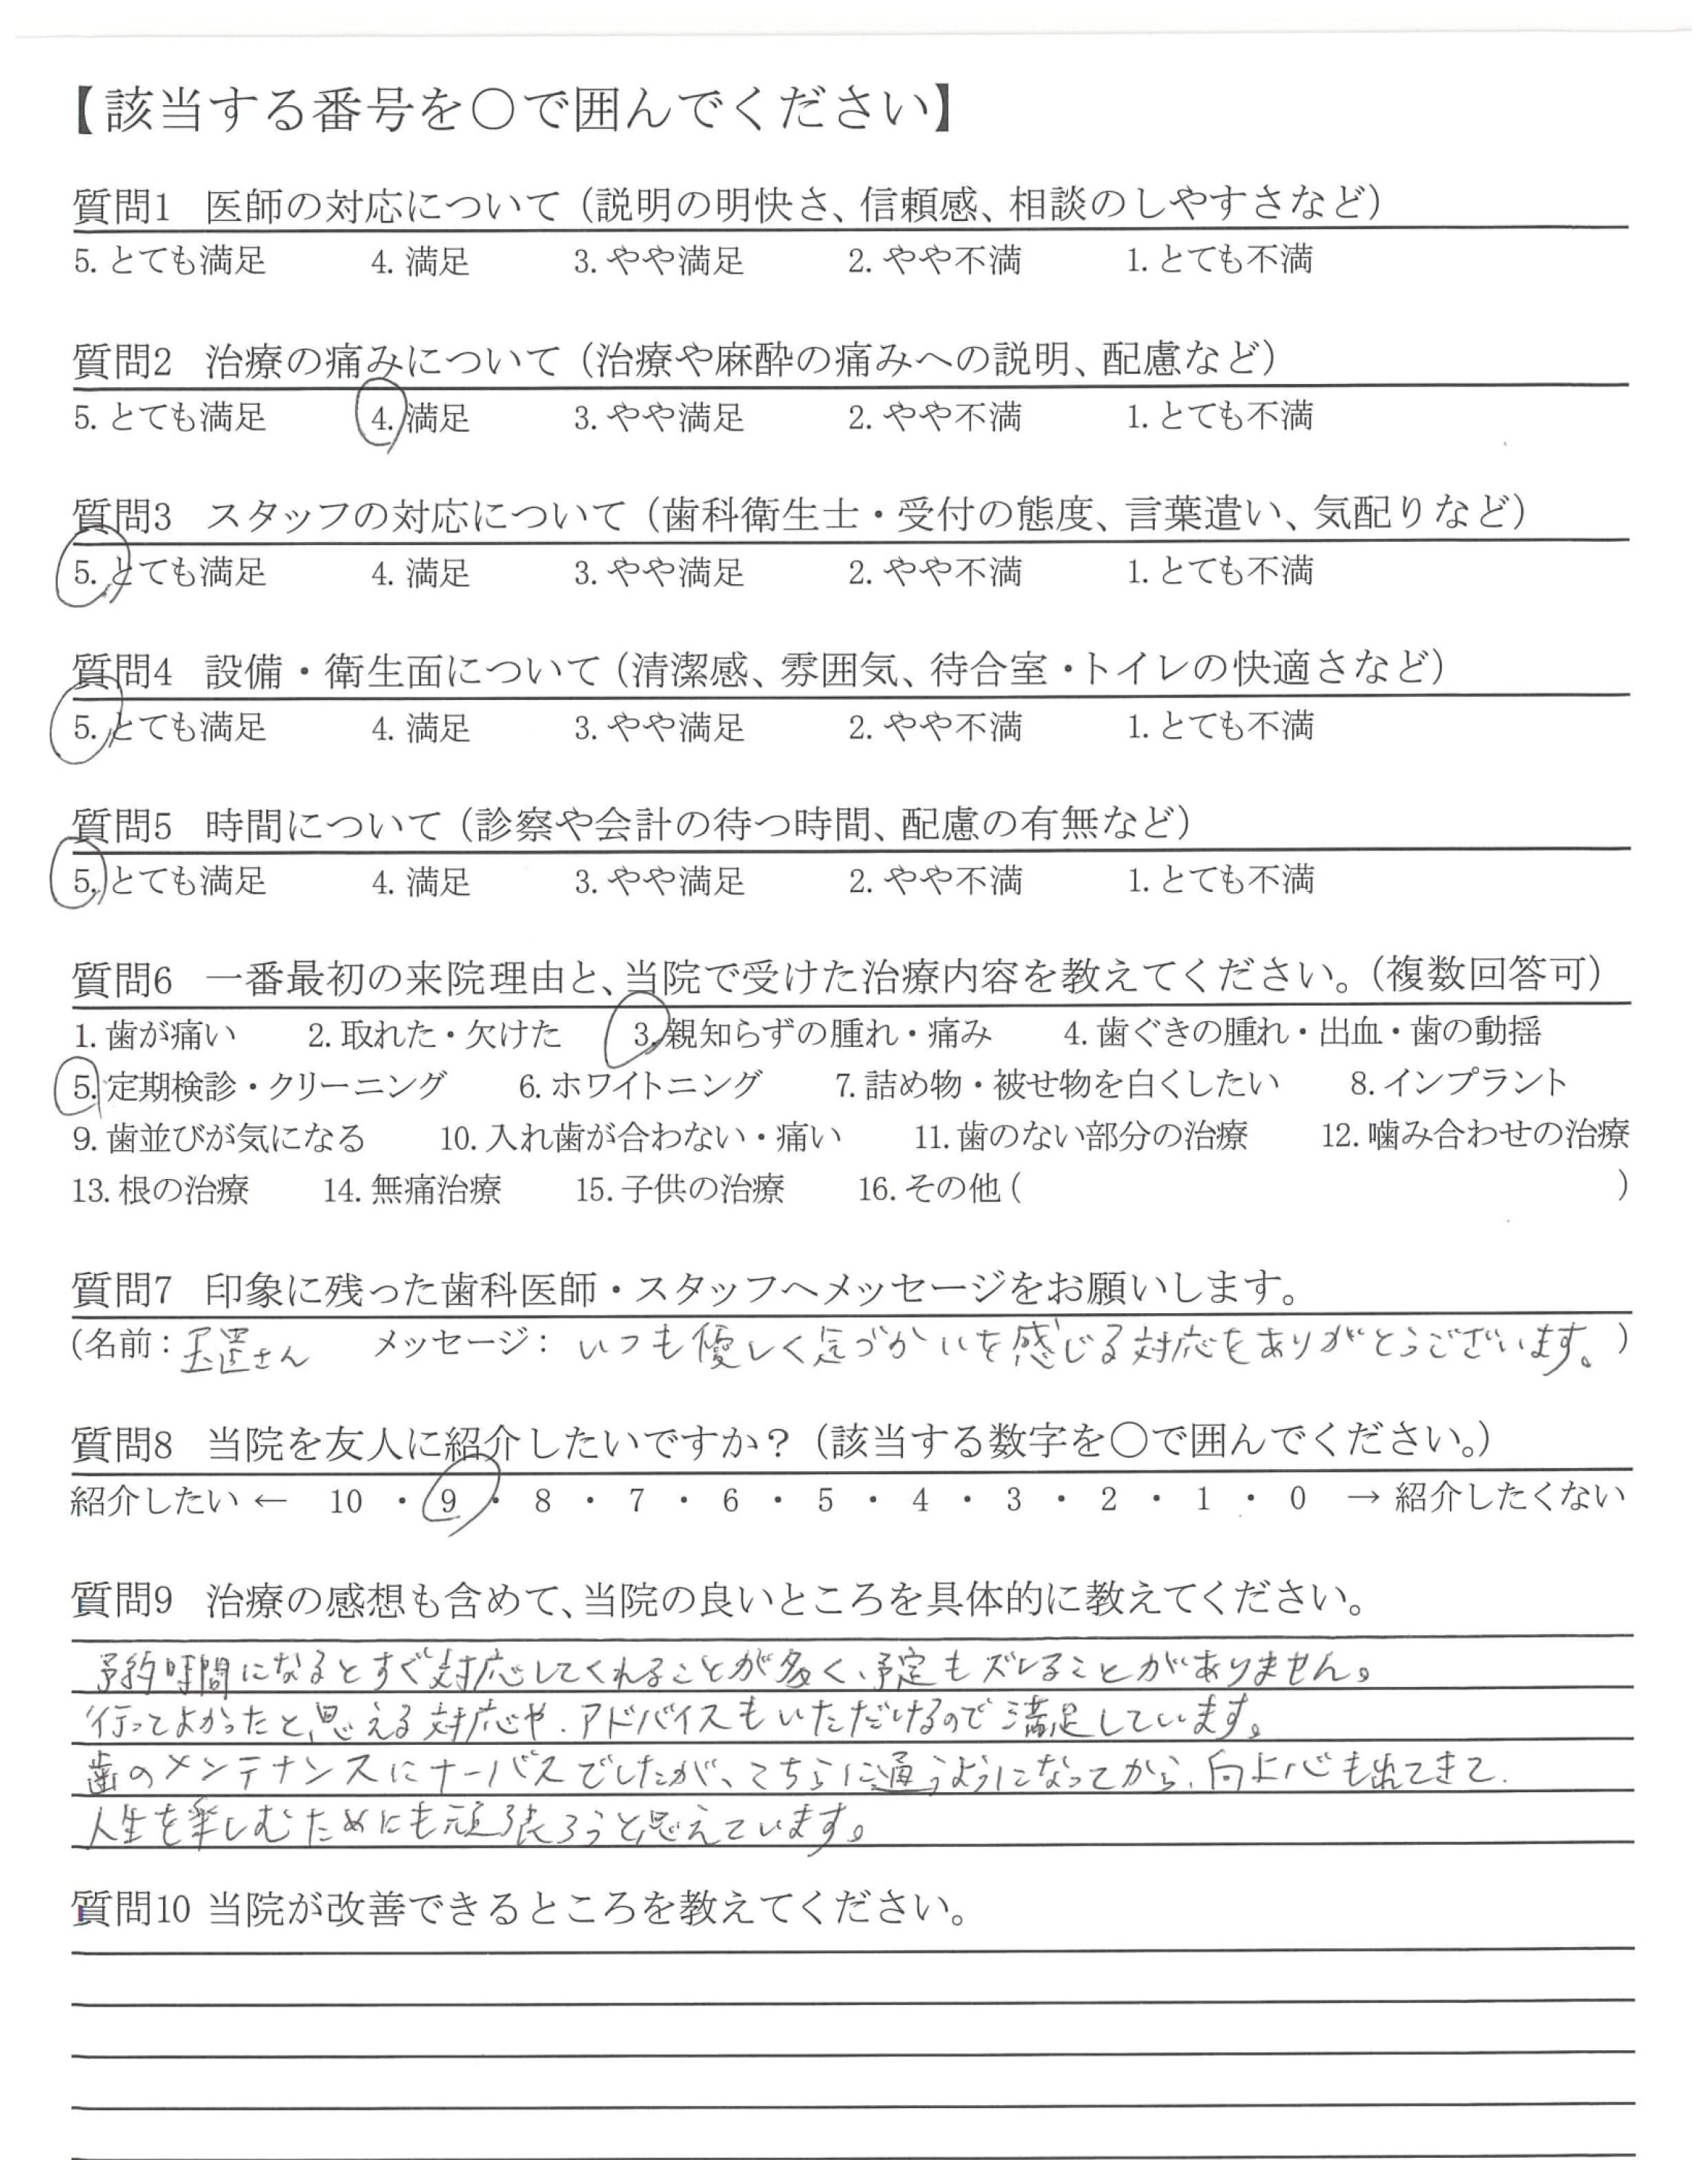 【該当する番号を○で囲んでください】
質問1 医師の対応について（説明の明快さ、信頼感、相談のしやすさなど）
5. とても満足 4. 満足 3. やや満足 2. やや不満 1. とても不満
質問2 治療の痛みについて（治療や麻酔の痛みへの説明、配慮など）
5. とても満足 4. 満足 3. やや満足 2. やや不満 1. とても不満
質問3 スタッフの対応について（歯科衛生士・受付の態度、言葉遣い、気配りなど）
5. とても満足 4. 満足 3. やや満足 2. やや不満 1. とても不満
質問4 設備・衛生面について（清潔感、雰囲気、待合室・トイレの快適さなど）
5. とても満足 4. 満足 3. やや満足 2. やや不満 1. とても不満
質問5 時間について（診察や会計の待つ時間、配慮の有無など）
5. とても満足 4. 満足 3. やや満足 2. やや不満 1. とても不満
質問6 一番最初の来院理由と、当院で受けた治療内容を教えてください。（複数回答可）
1. 歯が痛い 2. 取れた・欠けた 3. 親知らずの腫れ・痛み 4. 歯ぐきの腫れ・出血・歯の動揺
5. 定期検診・クリーニング 6. ホワイトニング 7. 詰め物・被せ物を白くしたい 8. インプラント
9. 歯並びが気になる 10. 入れ歯が合わない・痛い 11. 歯のない部分の治療 12. 噛み合わせの治療
13. 根の治療 14. 無痛治療 15. 子供の治療 16. その他（ ）
質問7 印象に残った歯科医師・スタッフへメッセージをお願いします。
（名前：玉置さん メッセージ：いつも優しく気づかいを感じる対応をありがとうございます。）
質問8 当院を友人に紹介したいですか？（該当する数字を○で囲んでください。）
紹介したい ← 10 ・ 9 ・ 8 ・ 7 ・ 6 ・ 5 ・ 4 ・ 3 ・ 2 ・ 1 ・ 0 → 紹介したくない
質問9 治療の感想も含めて、当院の良いところを具体的に教えてください。
予約時間になるとすぐ対応してくれることが多く、予定もズレることがありません。
行ってよかったと思える対応や、アドバイスもいただけるので満足しています。
歯のメンテナンスにナーバスでしたが、こちらに通うようになってから、向上心も出てきて、
人生を楽しむためにも頑張ろうと思えています。
質問10 当院が改善できるところを教えてください。